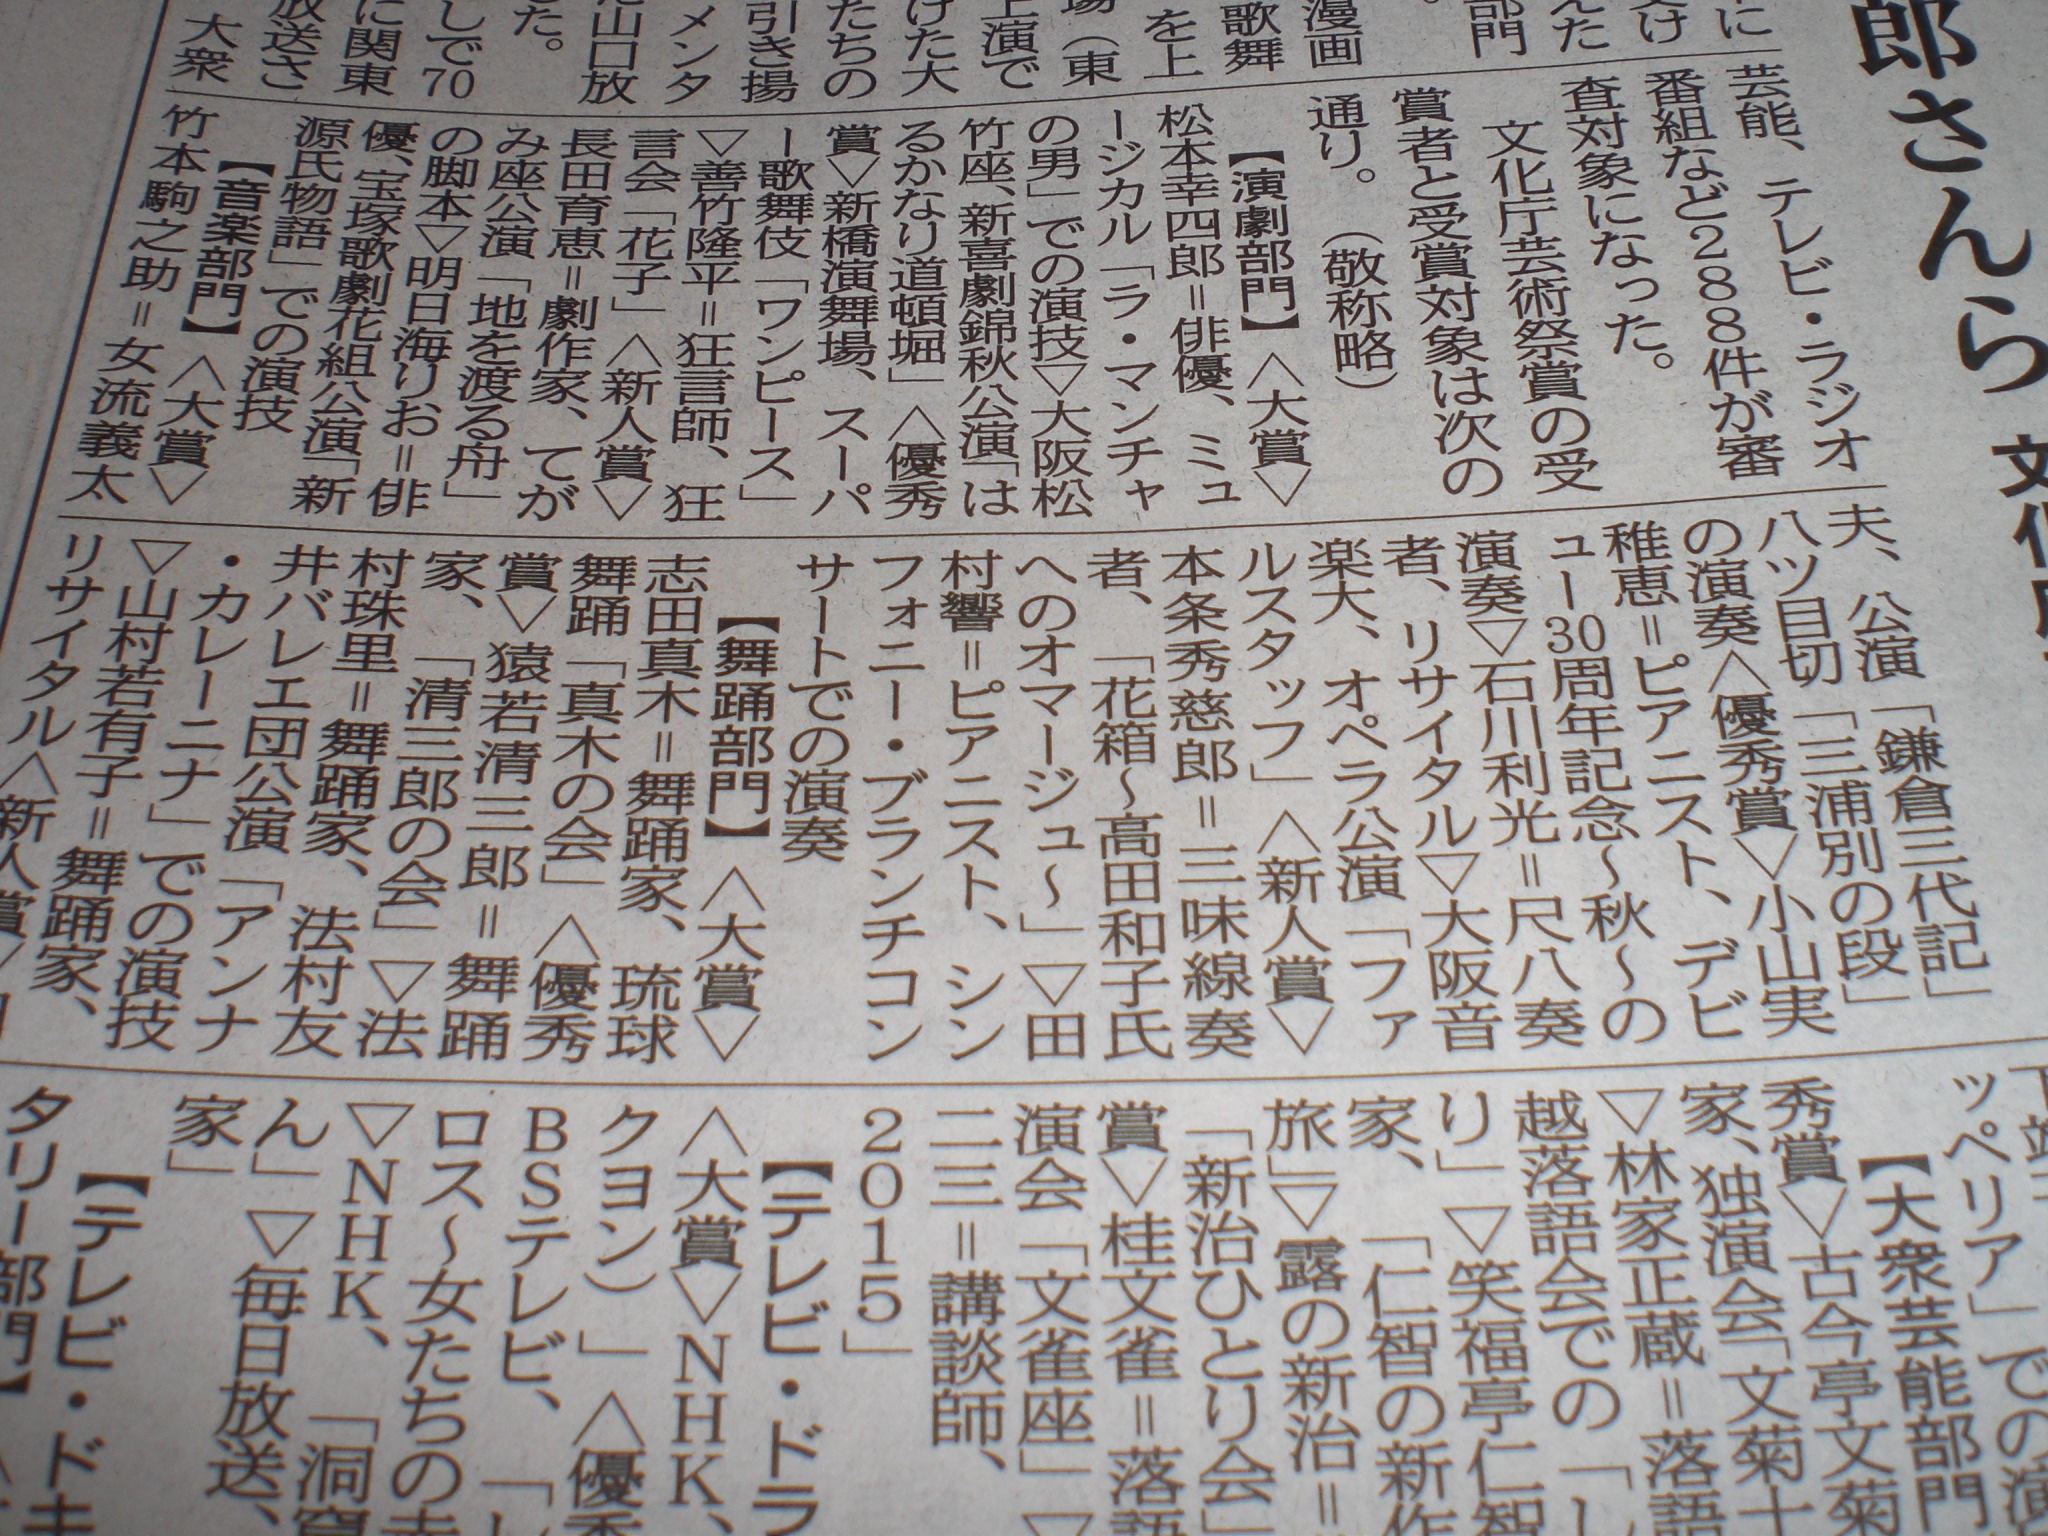 郎さんら
に
受け
えた
部門
。
漫画
歌舞
を上
場(東
上演で
けた大
たちの
引き揚
メンタ
山口放
た。
しで70
に関東
放送さ
大衆
芸能、テレビ・ラジオ
番組など288件が審
査対象になった。
文化庁芸術祭賞の受
賞者と受賞対象は次の
通り。(敬称略)
【演劇部門】〈大賞〉▽
松本幸四郎=俳優、ミュ
ージカル「ラ・マンチャ
の男」での演技▽大阪松
竹座、新喜劇錦秋公演「は
るかなり道頓堀」〈優秀
賞〉▽新橋演舞場、スーパ
ー歌舞伎「ワンピース」
▽善竹隆平=狂言師、狂
言会「花子」〈新人賞〉▽
長田育恵=劇作家、てが
み座公演「地を渡る舟」
の脚本▽明日海りお=俳
優、宝塚歌劇花組公演「新
源氏物語」での演技
【音楽部門】〈大賞〉▽
竹本駒之助=女流義太
夫、公演「鎌倉三代記」
八ツ目切「三浦別の段」
の演奏〈優秀賞〉▽小山実
稚恵=ピアニスト、デビ
ュー30周年記念~秋~の
演奏▽石川利光=尺八奏
者、リサイタル▽大阪音
楽大、オペラ公演「ファ
ルスタッフ」〈新人賞〉▽
本条秀慈郎=三味線奏
者、「花箱~高田和子氏
へのオマージュ~」▽田
村響=ピアニスト、シン
フォニー・ブランチコン
サートでの演奏
【舞踊部門】〈大賞〉▽
志田真木=舞踊家、琉球
舞踊「真木の会」〈優秀
賞〉▽猿若清三郎=舞踊
家、「清三郎の会」▽法
村珠里=舞踊家、法村友
井バレエ団公演「アンナ
・カレーニナ」での演技
▽山村若有子=舞踊家、
リサイタル〈新人賞〉
ッペリア」での演
【大衆芸能部門
秀賞〉▽古今亭文菊
家、独演会「文菊十
▽林家正蔵=落語
越落語会での「し
り」▽笑福亭仁智
家、「仁智の新作
旅」▽露の新治=
「新治ひとり会」
賞〉▽桂文雀=落語
演会「文雀座」▽
二三=講談師、
2015」
【テレビ・ドラ
〈大賞〉▽NHK、
クヨン)」〈優秀
BSテレビ、「レ
ロス~女たちの
▽NHK、「洞窟
ん」▽毎日放送、
家」
【テレビ・ドキ
タリー部門】